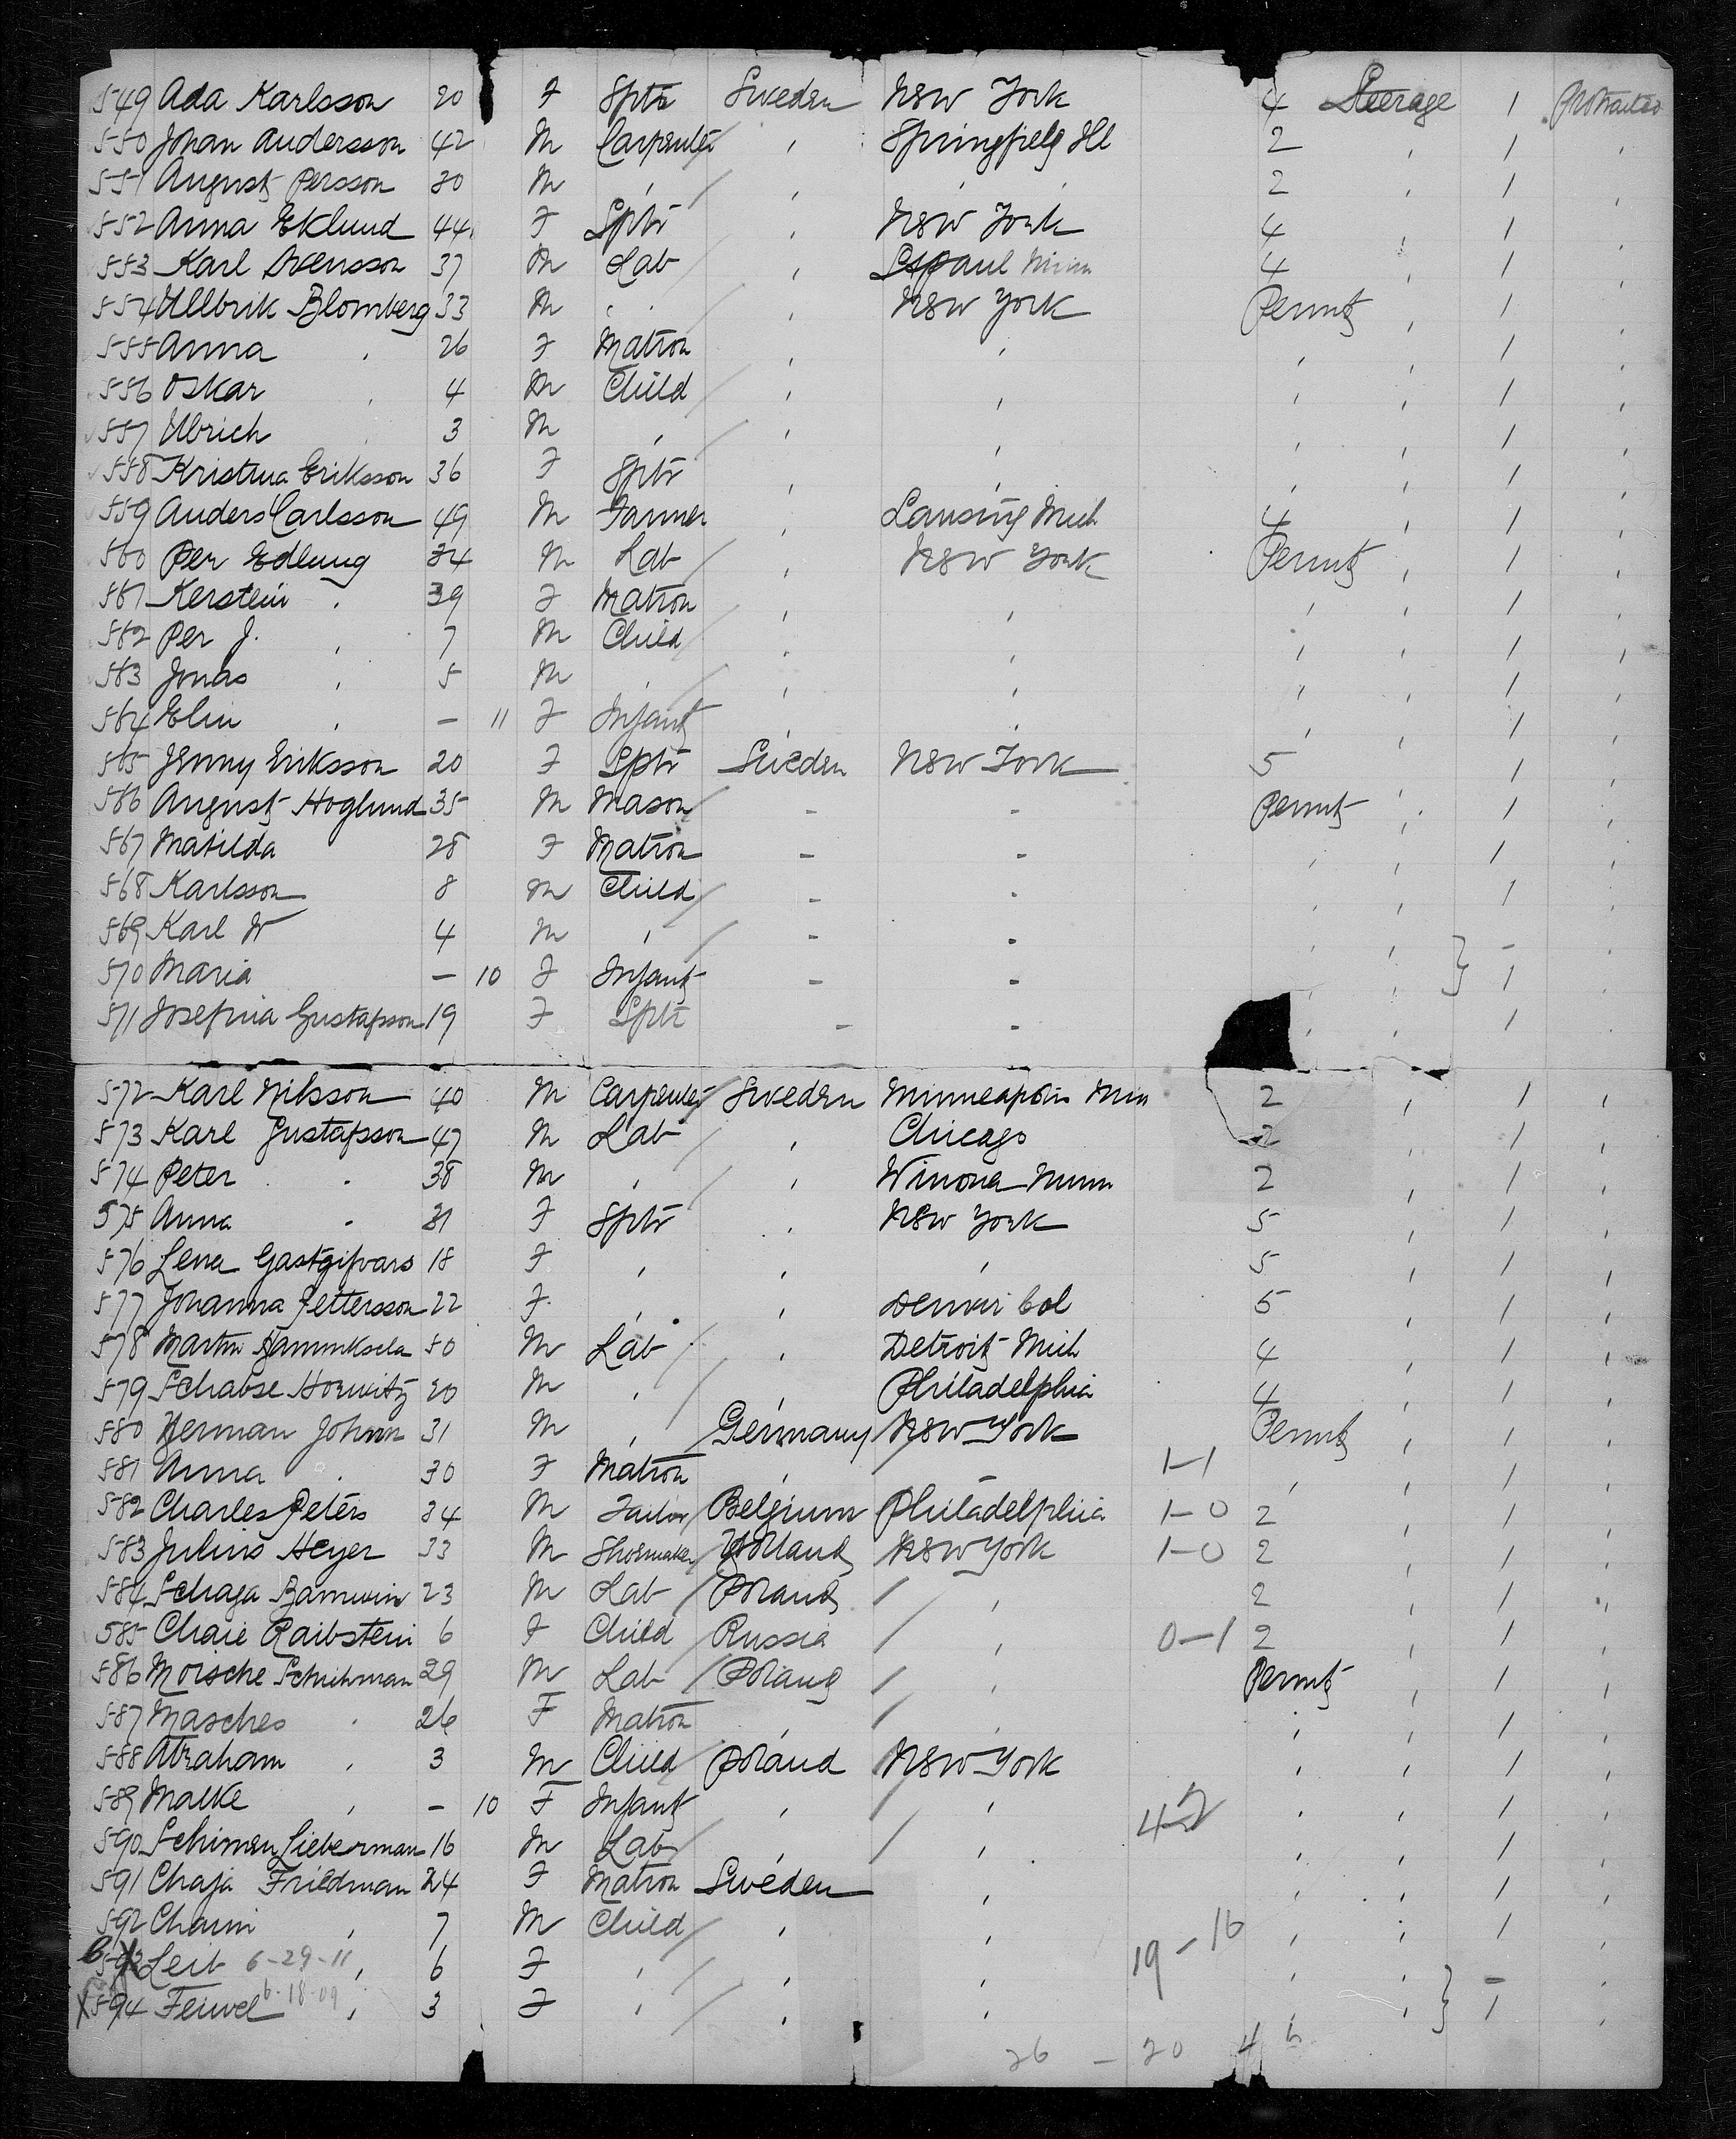 549 Ada Karlsson 20 F Sptr Sweden New York 4 Steerage 1 Protracted
550 Johan Andersson 42 M Carpenter / , Springfield Ill 2 , 1 ,
551 August Persson 30 M , / , , , 2 , 1 ,
552 Anna Eklund 44 F Sptr , New York 4 , 1 ,
553 Karl Svensson 37 M Lab , St Paul Minn 4 , 1 ,
554 Ullbrik Blomberg 33 M , , New York Permit , 1 ,
555 Anna , 26 F Matron , , , , 1 ,
556 Oskar , 4 M Child / , , , , 1 ,
557 Ulrich , 3 M , / , , , , 1 ,
558 Kristina Eriksson 36 F Sptr , , , , 1 ,
559 Anders Carlsson 49 M Farmer , Lansing Mich 4 , 1 ,
560 Per Edlung 34 M Lab / , New York Permit , 1 ,
561 Kerstein , 39 F Matron , , , , 1 ,
562 Per J. , 7 M Child / , , , , 1 ,
563 Jonas , 5 M , / , , , , 1 ,
564 Elin , — 11 F Infant , , , , 1 ,
565 Jenny Eriksson 20 F Sptr Sweden New York 5 , 1 ,
566 August Hoglund 35 M Mason / - - Permit , 1 ,
567 Matilda 28 F Matron - - , , 1 ,
568 Karlsson 8 M Child / - - , , 1 ,
569 Karl W 4 M , / - - , , } - ,
570 Maria — 10 F Infant - - , , 1 ,
571 Josefina Gustafsson 19 F Sptr - - , 1 ,
572 Karl Nilsson 40 M Carpenter / Sweden Minneapolis Min 2 , 1 ,
573 Karl Gustafsson 47 M Lab / , Chicago 2 , 1 ,
574 Peter , 38 M , / , Winona Minn 2 , 1 ,
575 Anna , 31 F Sptr , New York 5 , 1 ,
576 Lena Gastgifvars 18 F , , , 5 , 1 ,
577 Johanna Pettersson 22 F , , Denver Col 5 , 1 ,
578 Martin 50 M Lab / , Detroit Mich 4 , 1 ,
579 Schabse Horwitz 20 M , / , Philadelphia 4 , 1 ,
580 Herman Johnn 31 M , / Germany / New York Permit , 1 ,
581 Anna , 30 F Matron , , 1-1 , , 1 ,
582 Charles Peters 34 M Tailor Belgium Philadelphia 1-0 2 , 1 ,
583 Julius Heyer 33 M Shoemaker / Holland New York 1-0 2 , 1 ,
584 Schaga 23 M Lab / Poland / , 2 , 1 ,
585 Chaie Raibstein 6 F Child Russia / , 0-1 2 , 1 ,
586 Moische Schuhman 29 M Lab / Poland / , Permit , 1 ,
587 Masches , 26 F Matron , / , , , 1 ,
588 Abraham , 3 M Child / Poland / New York , , 1 ,
589 Malke , — 10 F Infant , / , 4-2 , , 1 ,
590 Schimen Lieberman 16 M Lab / , / , , , 1 ,
591 Chaja Friedman 24 F Matron Sweden , , , 1 ,
592 Chaim , 7 M Child / , , 19-16 , , 1 ,
593 Leib 6-29-11 , 6 F , / , , , , } - ,
594 Feiwel 6-18-09 , 3 F , / , , , 1 ,
26 - 20 4 6